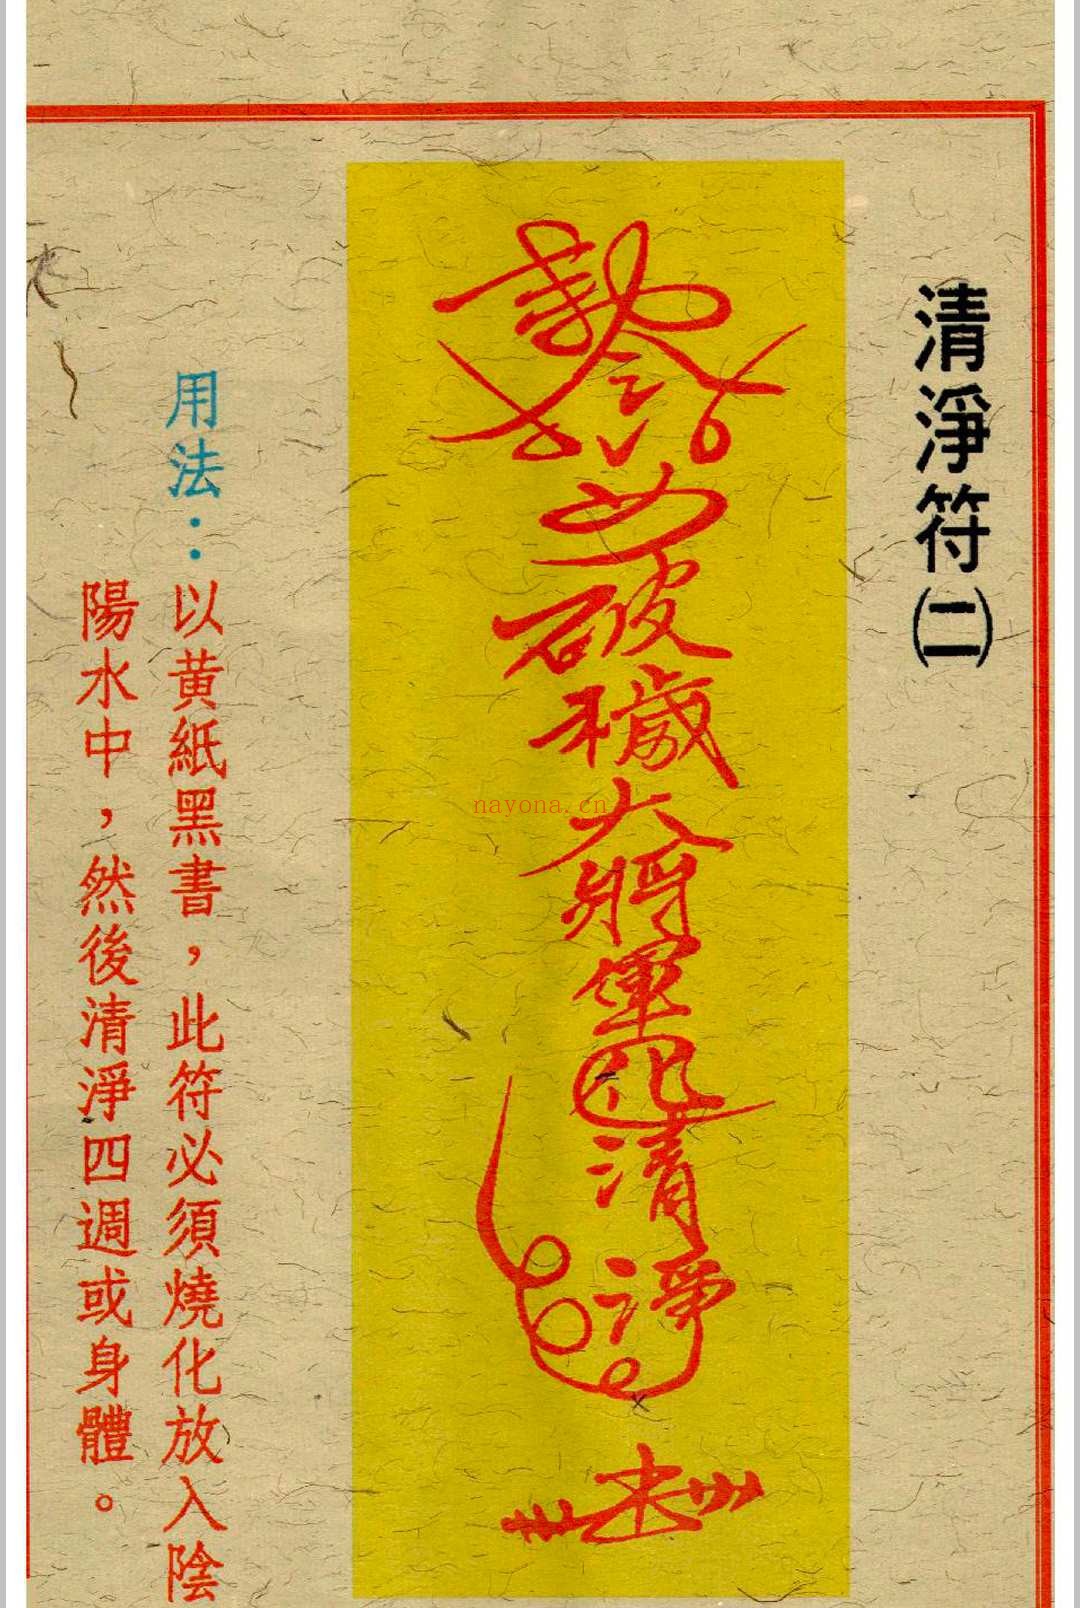 清淨符㈡
勅令
破穢大將軍
清淨
用法：以黄紙黑書，此符必須燒化放入陰
陽水中，然後清淨四週或身體。
nayona.cn